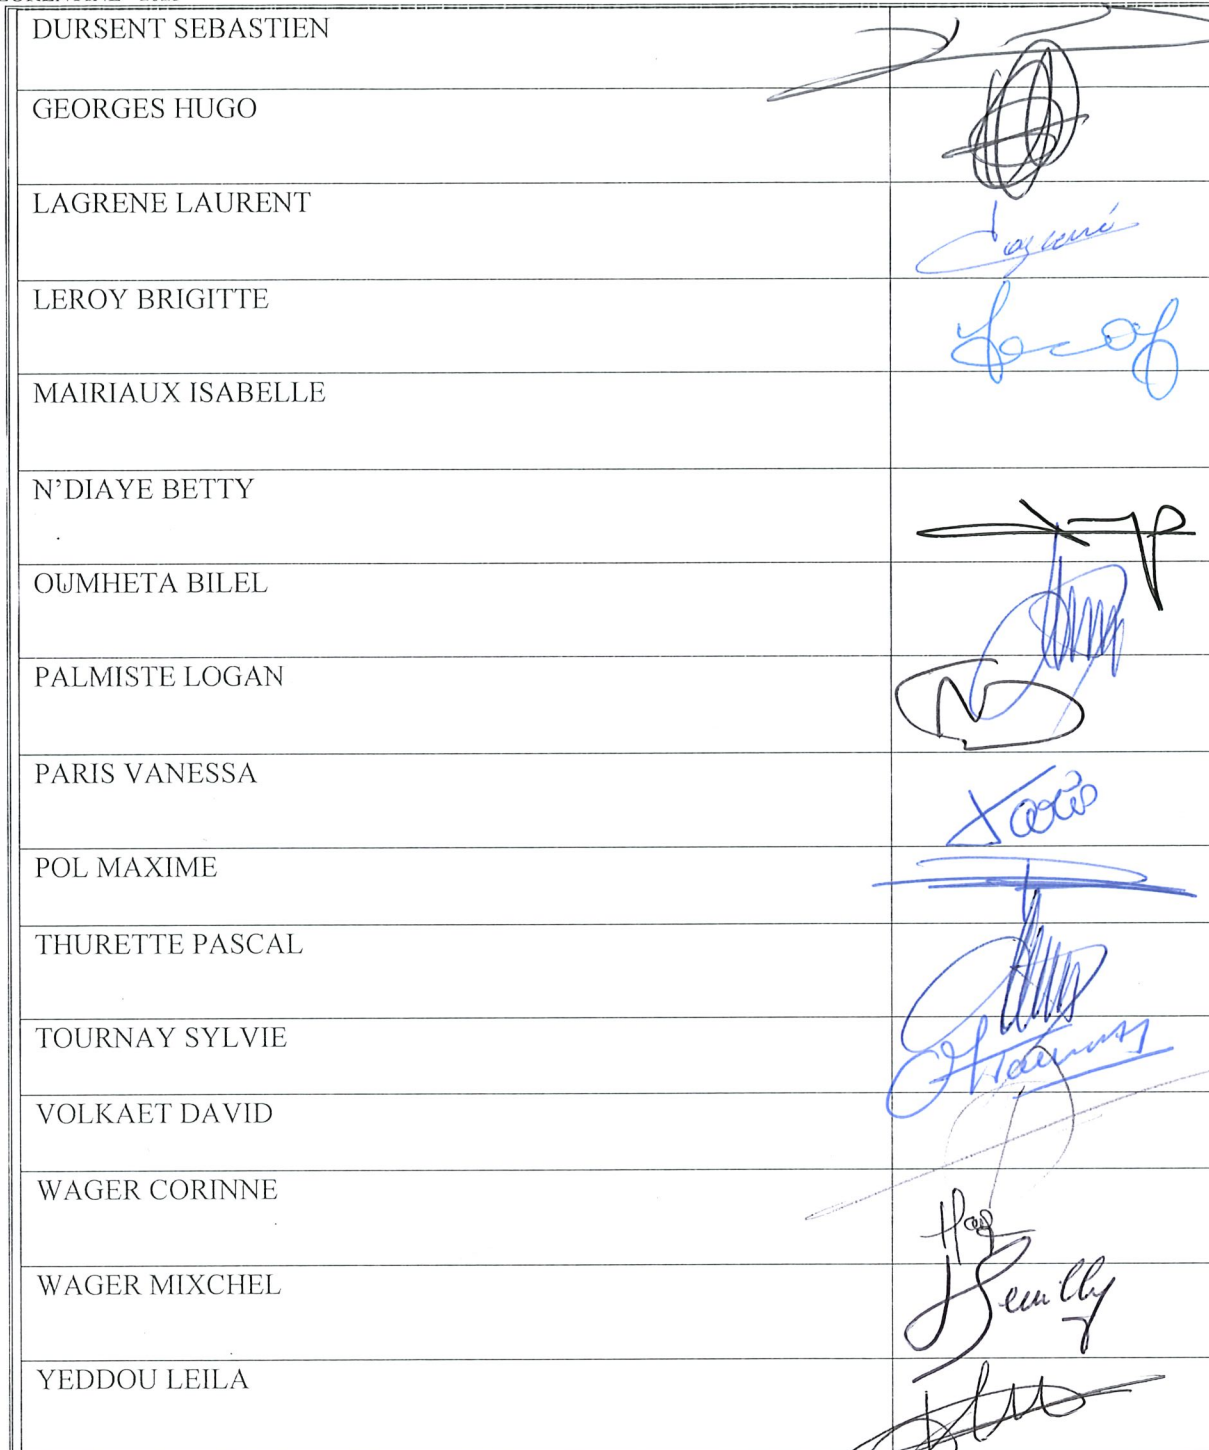 DURSENT SEBASTIEN
GEORGES HUGO
LAGRENE LAURENT
LEROY BRIGITTE
MAIRIAUX ISABELLE
N'DIAYE BETTY
OUMHETA BILEL
PALMISTE LOGAN
PARIS VANESSA
POL MAXIME
THURETTE PASCAL
TOURNAY SYLVIE
VOLKAET DAVID
WAGER CORINNE
WAGER MIXCHEL
YEDDOU LEILA